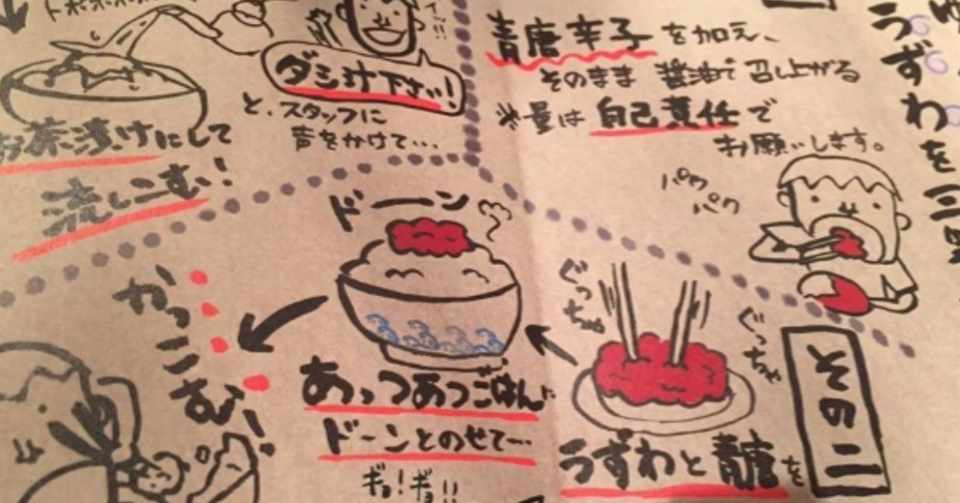 うずわを三
青唐辛子を加え、
そのまま 醤油で召し上がる
※量は自己責任で
お願いします。
パク
パク
その二
うずわと青唐を
ぐっちゃ
ぐっちゃ
ドーン
あっつあつごはんに
ドーンとのせて…
ギョ!ギョ!!
かっこむ!
ダシ汁下さい!
と、スタッフに
声をかけて…
お茶漬けにして
流しこむ!